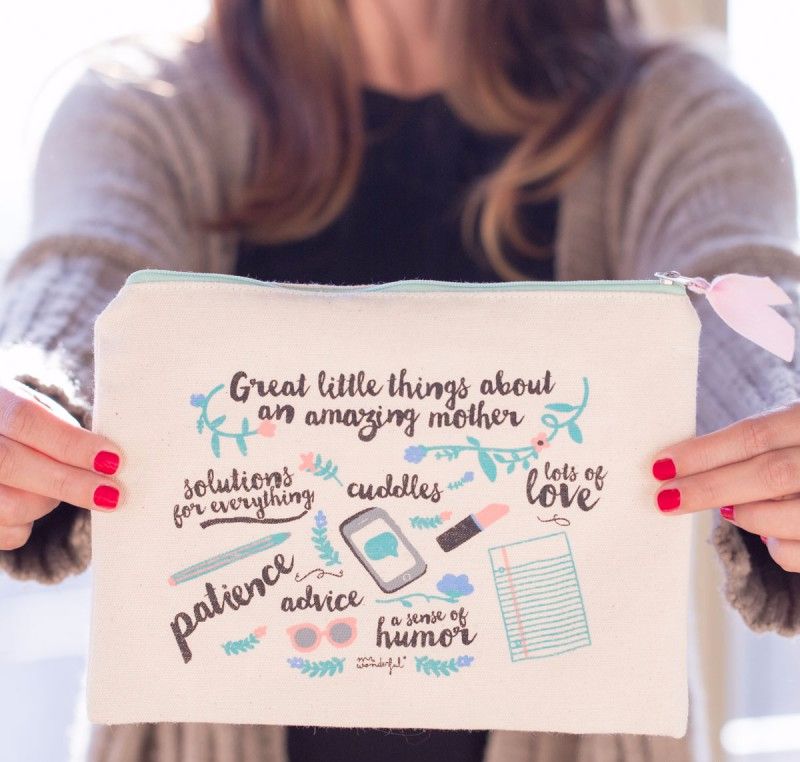 Great little things about
an amazing mother
solutions
for everything
cuddles
lots of
love
patience
advice
a sense of
humor
mr.
wonderful*